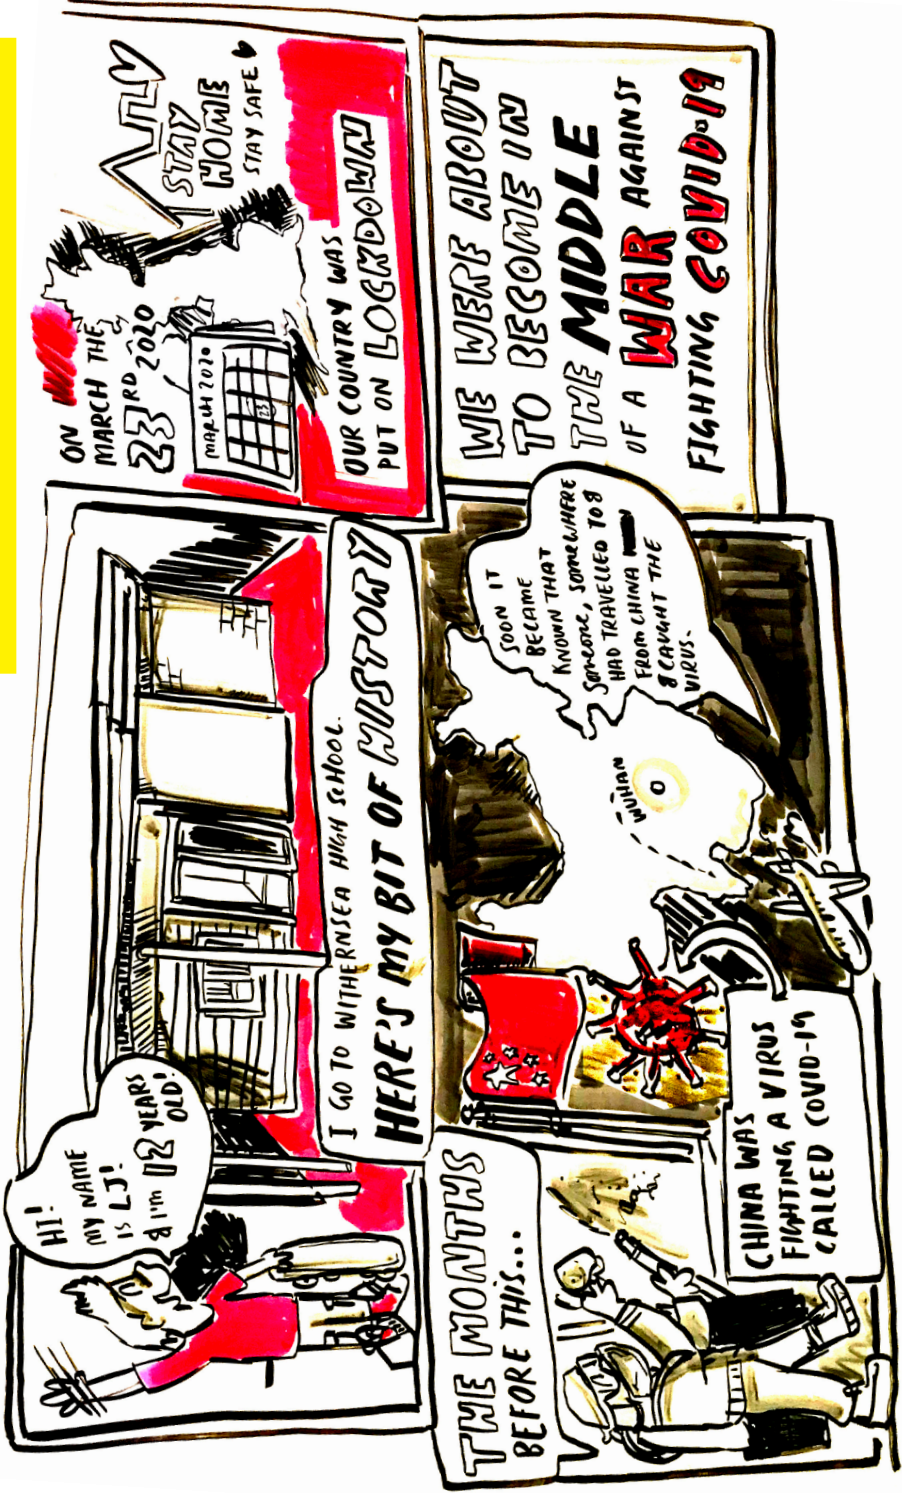 HI!
MY NAME
IS LJ!
& I'm 12 YEARS
OLD!
I GO TO WITHERNSEA HIGH SCHOOL.
HERE'S MY BIT OF HISTORY
ON
MARCH THE
23RD 2020
MARCH 2020
23
STAY
HOME
STAY SAFE
OUR COUNTRY WAS
PUT ON LOCKDOWN
THE MONTHS
BEFORE THIS...
CHINA WAS
FIGHTING A VIRUS
CALLED COVID-19
WUHAN
SOON IT
BECAME
KNOWN THAT
Someone, SOMEWHERE
HAD TRAVELLED TO &
FROM CHINA
& CAUGHT THE
VIRUS.
WE WERE ABOUT
TO BECOME IN
THE MIDDLE
OF A WAR AGAINST
FIGHTING COVID-19